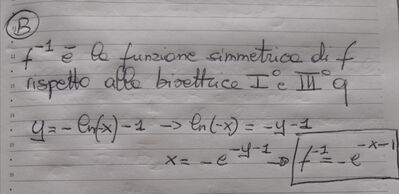 B
f⁻¹ è la funzione simmetrica di f
rispetto alla bisettrice I° e III° q
y=-ln(-x)-1 -> ln(-x)=-y-1
x=-e^{-y-1} -> f⁻¹=-e^{-x-1}